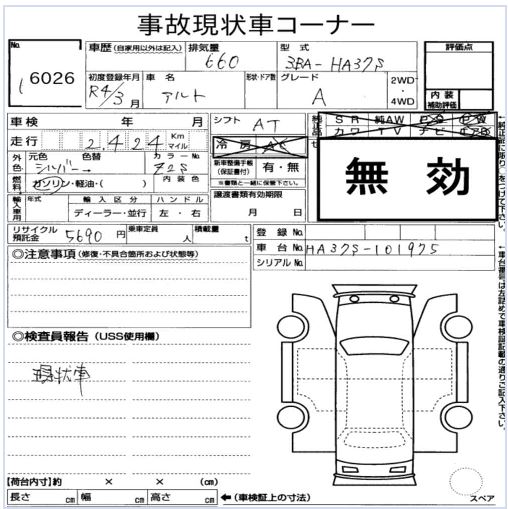 事故現状車コーナー
No. 6026
車歴 (自家用以外は記入) 排気量 660 型式 3BA-HA37S 評価点
初度登録年月 R4/3月 車名 アルト 形状・ドア数 グレード A 2WD・4WD 内装 補助評価
車検 年 月 シフト AT
走行 2,424 Km マイル 冷房 AC
外色 元色 シルバー 色替 → カラーNo Z2S 新車整備手帳 (保証書付) 有・無
燃料 ガソリン・軽油・( ) 内装色 ※書類と一緒に保管下さい。
無効
輸入車用 年式 輸入区分 ハンドル 譲渡書類有効期限
ディーラー・並行 左・右 月 日
リサイクル預託金 5690 円 乗車定員 人 積載量 t 登録No
車台No HA37S-101975
シリアルNo
◎注意事項 (修復・不具合箇所および状態等)
◎検査員報告 (USS使用欄)
現状車
【荷台内寸】約 × × (cm)
長さ cm 幅 cm 高さ cm ←(車検証上の寸法)
スペア